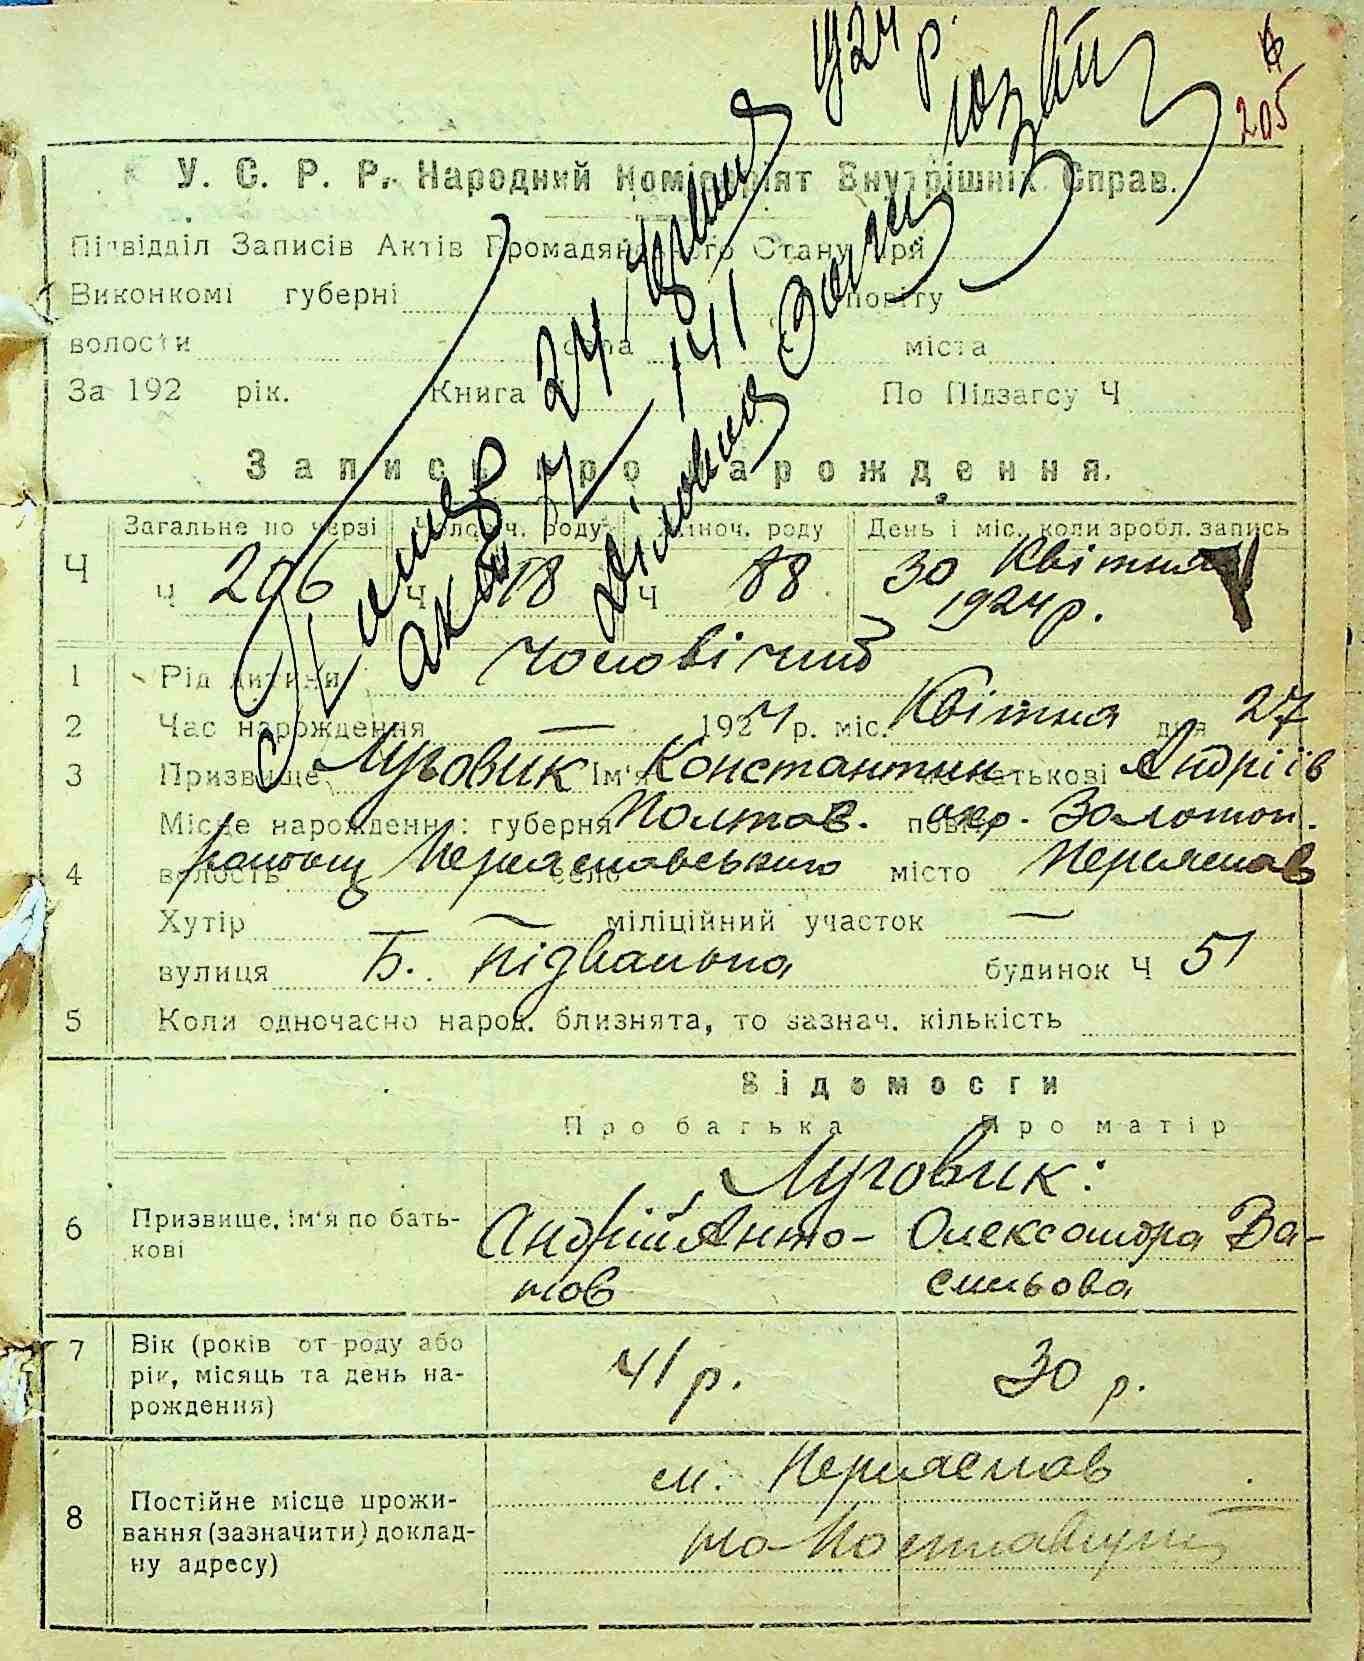 205
У. С. Р. Р. Народний Комісаріят Внутрішніх Справ.
Підвідділ Записів Актів Громадянського Стану при
Виконкомі губерні повіту
волости села міста
За 192 рік. Книга Ч По Підзагсу Ч
Запись про нарождення.
1924 р.
24
141
Ч
Загальне по черзі Чоловіч. роду Жіноч. роду День і міс. коли зробл. запись
Ч 206 Ч 118 Ч 88 30 Квітня
1924 р.
1 Рід дитини чоловічий
2 Час нарождення — 1924 р. міс. Квітня дня 27
3 Призвище Луговик Ім'я Константин по батькові Андріїв
4 Місце нарождення: губерня Полтав. повіт окр. Золотон.
волость району Переяславського село місто Переяслав
Хутір — міліційний участок —
вулиця Б. Підвальна будинок Ч 51
5 Коли одночасно народ. близнята, то зазнач. кількість
Відомости
Про батька Про матір
Луговик:
6 Призвище, ім'я по батькові Андрій Анто- Олександра Ва-
нов сильова
7 Вік (років от роду або рік, місяць та день нарождення) 41 р. 30 р.
8 Постійне місце прожи-
вання (зазначити) доклад-
ну адресу)
м. Переяслав